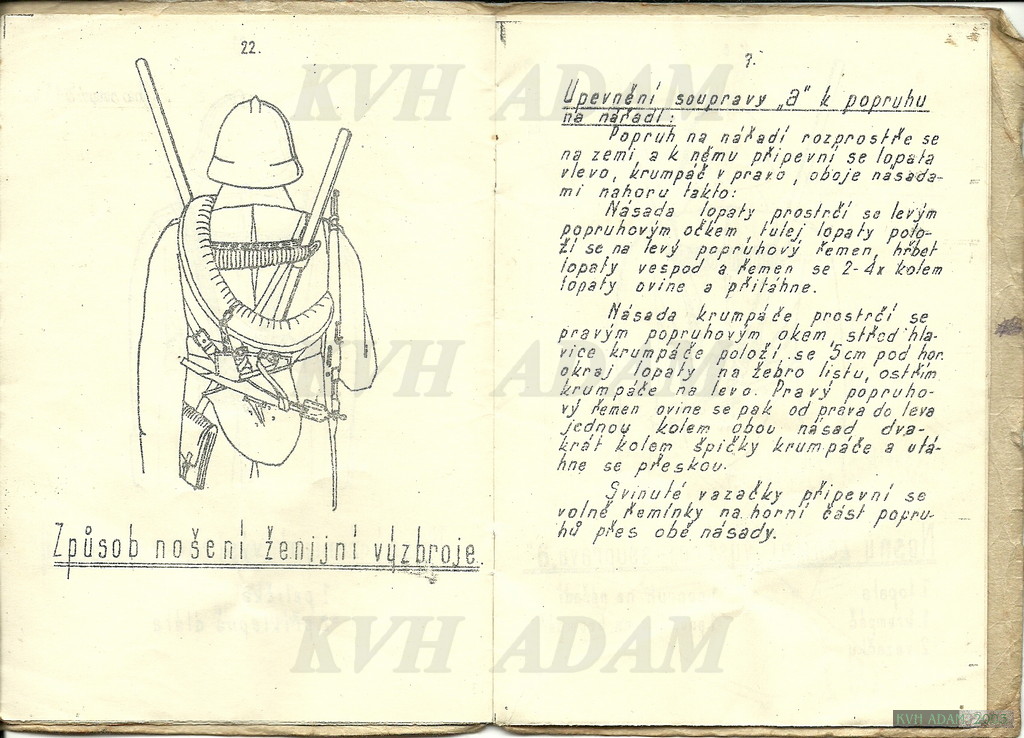 22.
Způsob nošení ženijní výzbroje.
3.
Upevnění soupravy „a" k popruhu
na nářadí:
Popruh na nářadí rozprostře se
na zemi a k němu připevní se lopata
vlevo, krumpáč v pravo, oboje násada-
mi nahoru takto:
Násada lopaty prostrčí se levým
popruhovým očkem, tulej lopaty polo-
ží se na levý popruhový řemen, hřbet
lopaty vespod a řemen se 2-4x kolem
lopaty ovine a přitáhne.
Násada krumpáče prostrčí se
pravým popruhovým okem střed hla-
vice krumpáče položí se 5cm pod hor.
okraj lopaty na žebro listu, ostřím
krumpáče na levo. Pravý popruho-
vý řemen ovine se pak od prava do leva
jednou kolem obou násad dva-
krát kolem špičky krumpáče a utá-
hne se přeskou.
Svinuté vazačky připevní se
volně řemínky na horní část popru-
hů přes obě násady.
KVH ADAM
KVH ADAM
KVH ADAM
KVH ADAM